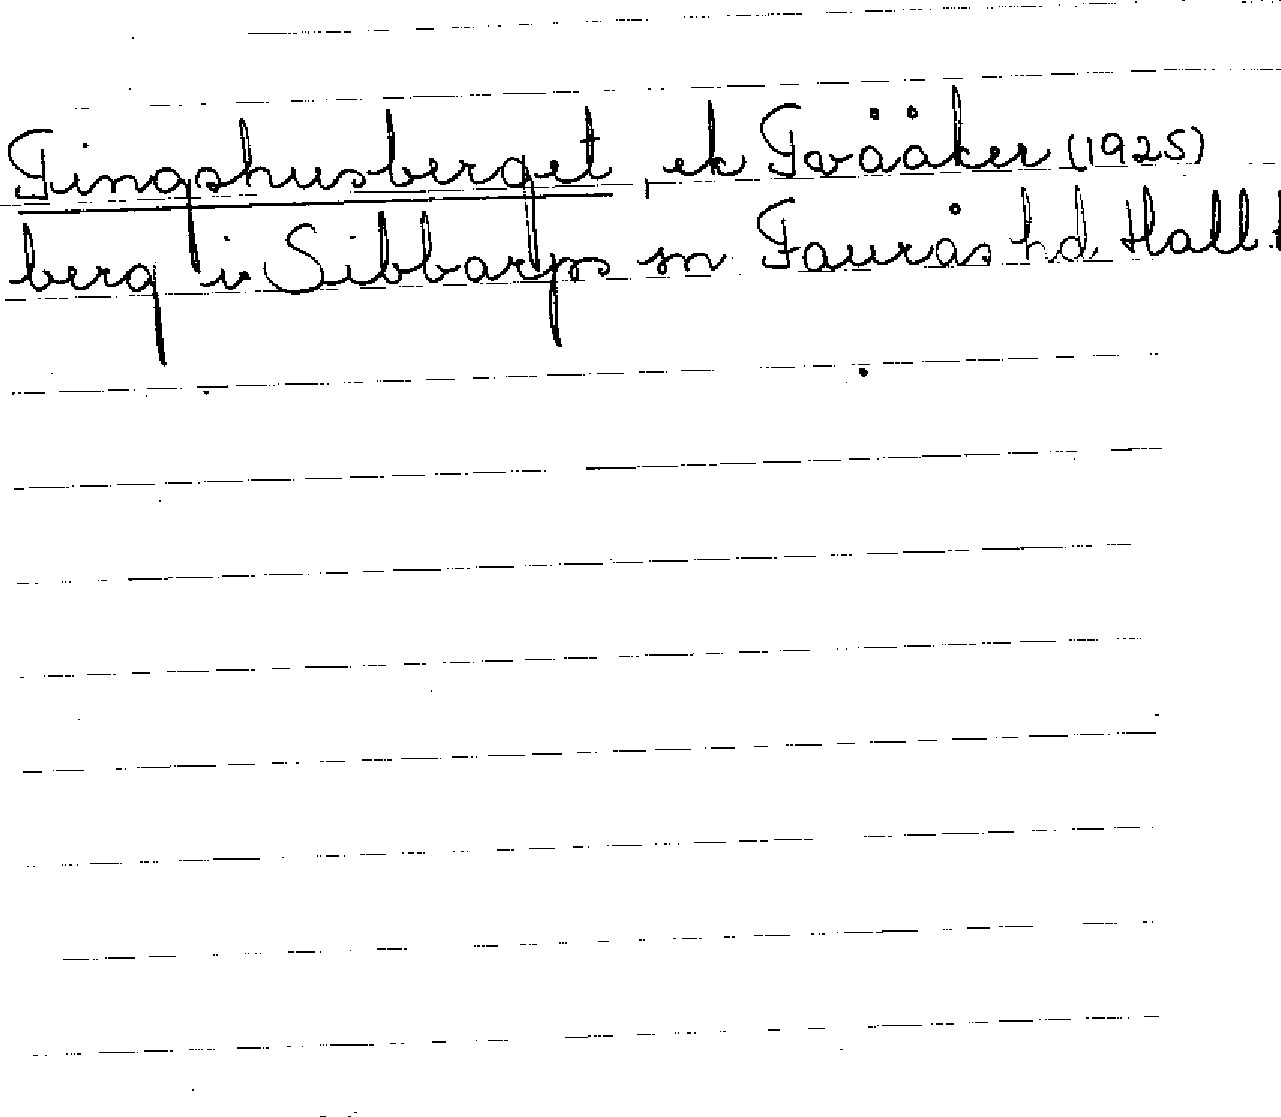 Tingshusberget, ek Tvååker (1925)
berg i Sibbarps sn Faurås hd, Hall.